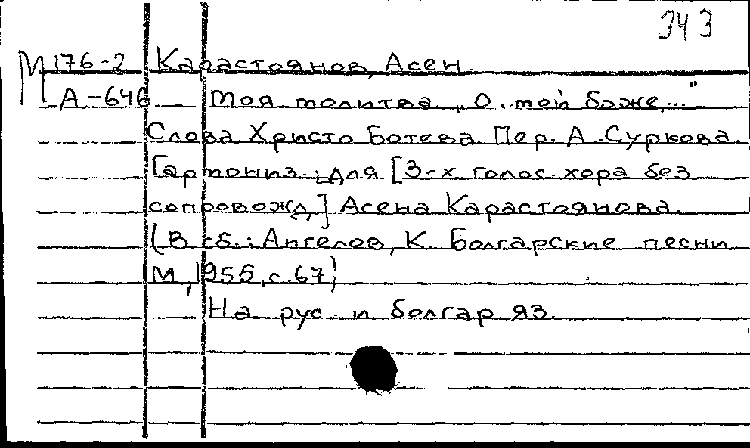 343
М176-2 Карастоянов, Асен
А-646 Моя молитва „О, мой боже,..."
Слова Христо Ботева. Пер. А. Суркова.
Гармониз. для [3-х голос. хора без
сопровожд.] Асена Карастоянова.
(В сб.: Ангелов, К. Болгарские песни.
М., 1955, с. 67)
На рус. и болгар. яз.